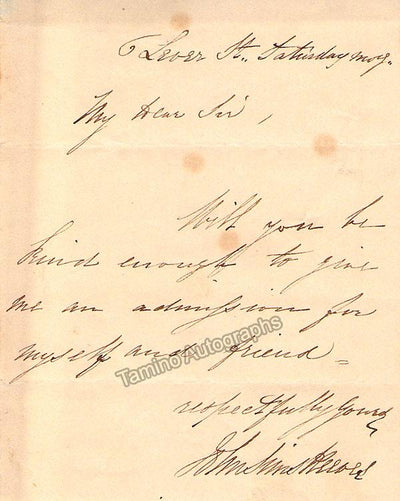 6 Lever St. Saturday morg.
My Dear Sir,
Will you be
kind enough to give
me an admission for
myself and friend =
respectfully Yours
John Sims Reeves
Tamino Autographs